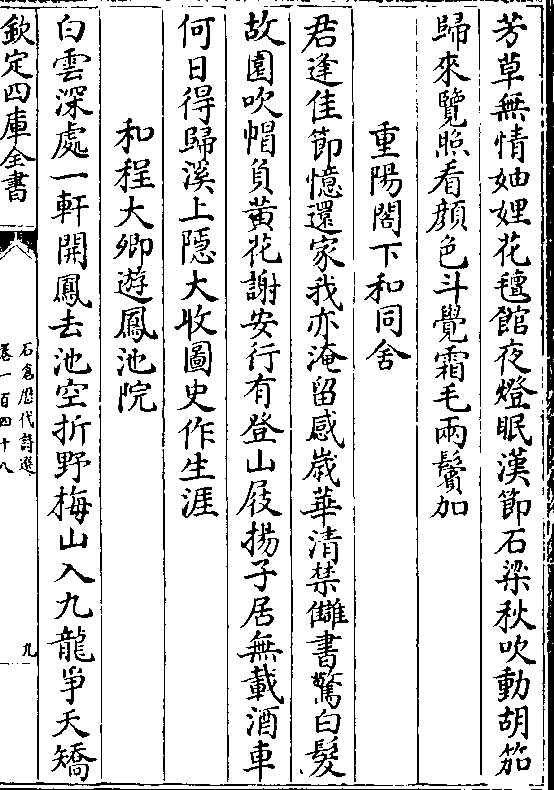 芳草無情妯娌花氊館夜燈眠漢節石梁秋吹動胡笳
歸來覽照看顔色斗覺霜毛兩鬢加
重陽閣下和同舍
君逢佳節憶還家我亦淹留感嵗華清禁讎書驚白髮
故園吹帽負黃花謝安行有登山屐揚子居無載酒車
何日得歸溪上隱大收圖史作生涯
和程大卿遊鳳池院
白雲深處一軒開鳳去池空折野梅山入九龍爭夭矯
欽定四庫全書
石倉歴代詩選
卷一百四十八
九